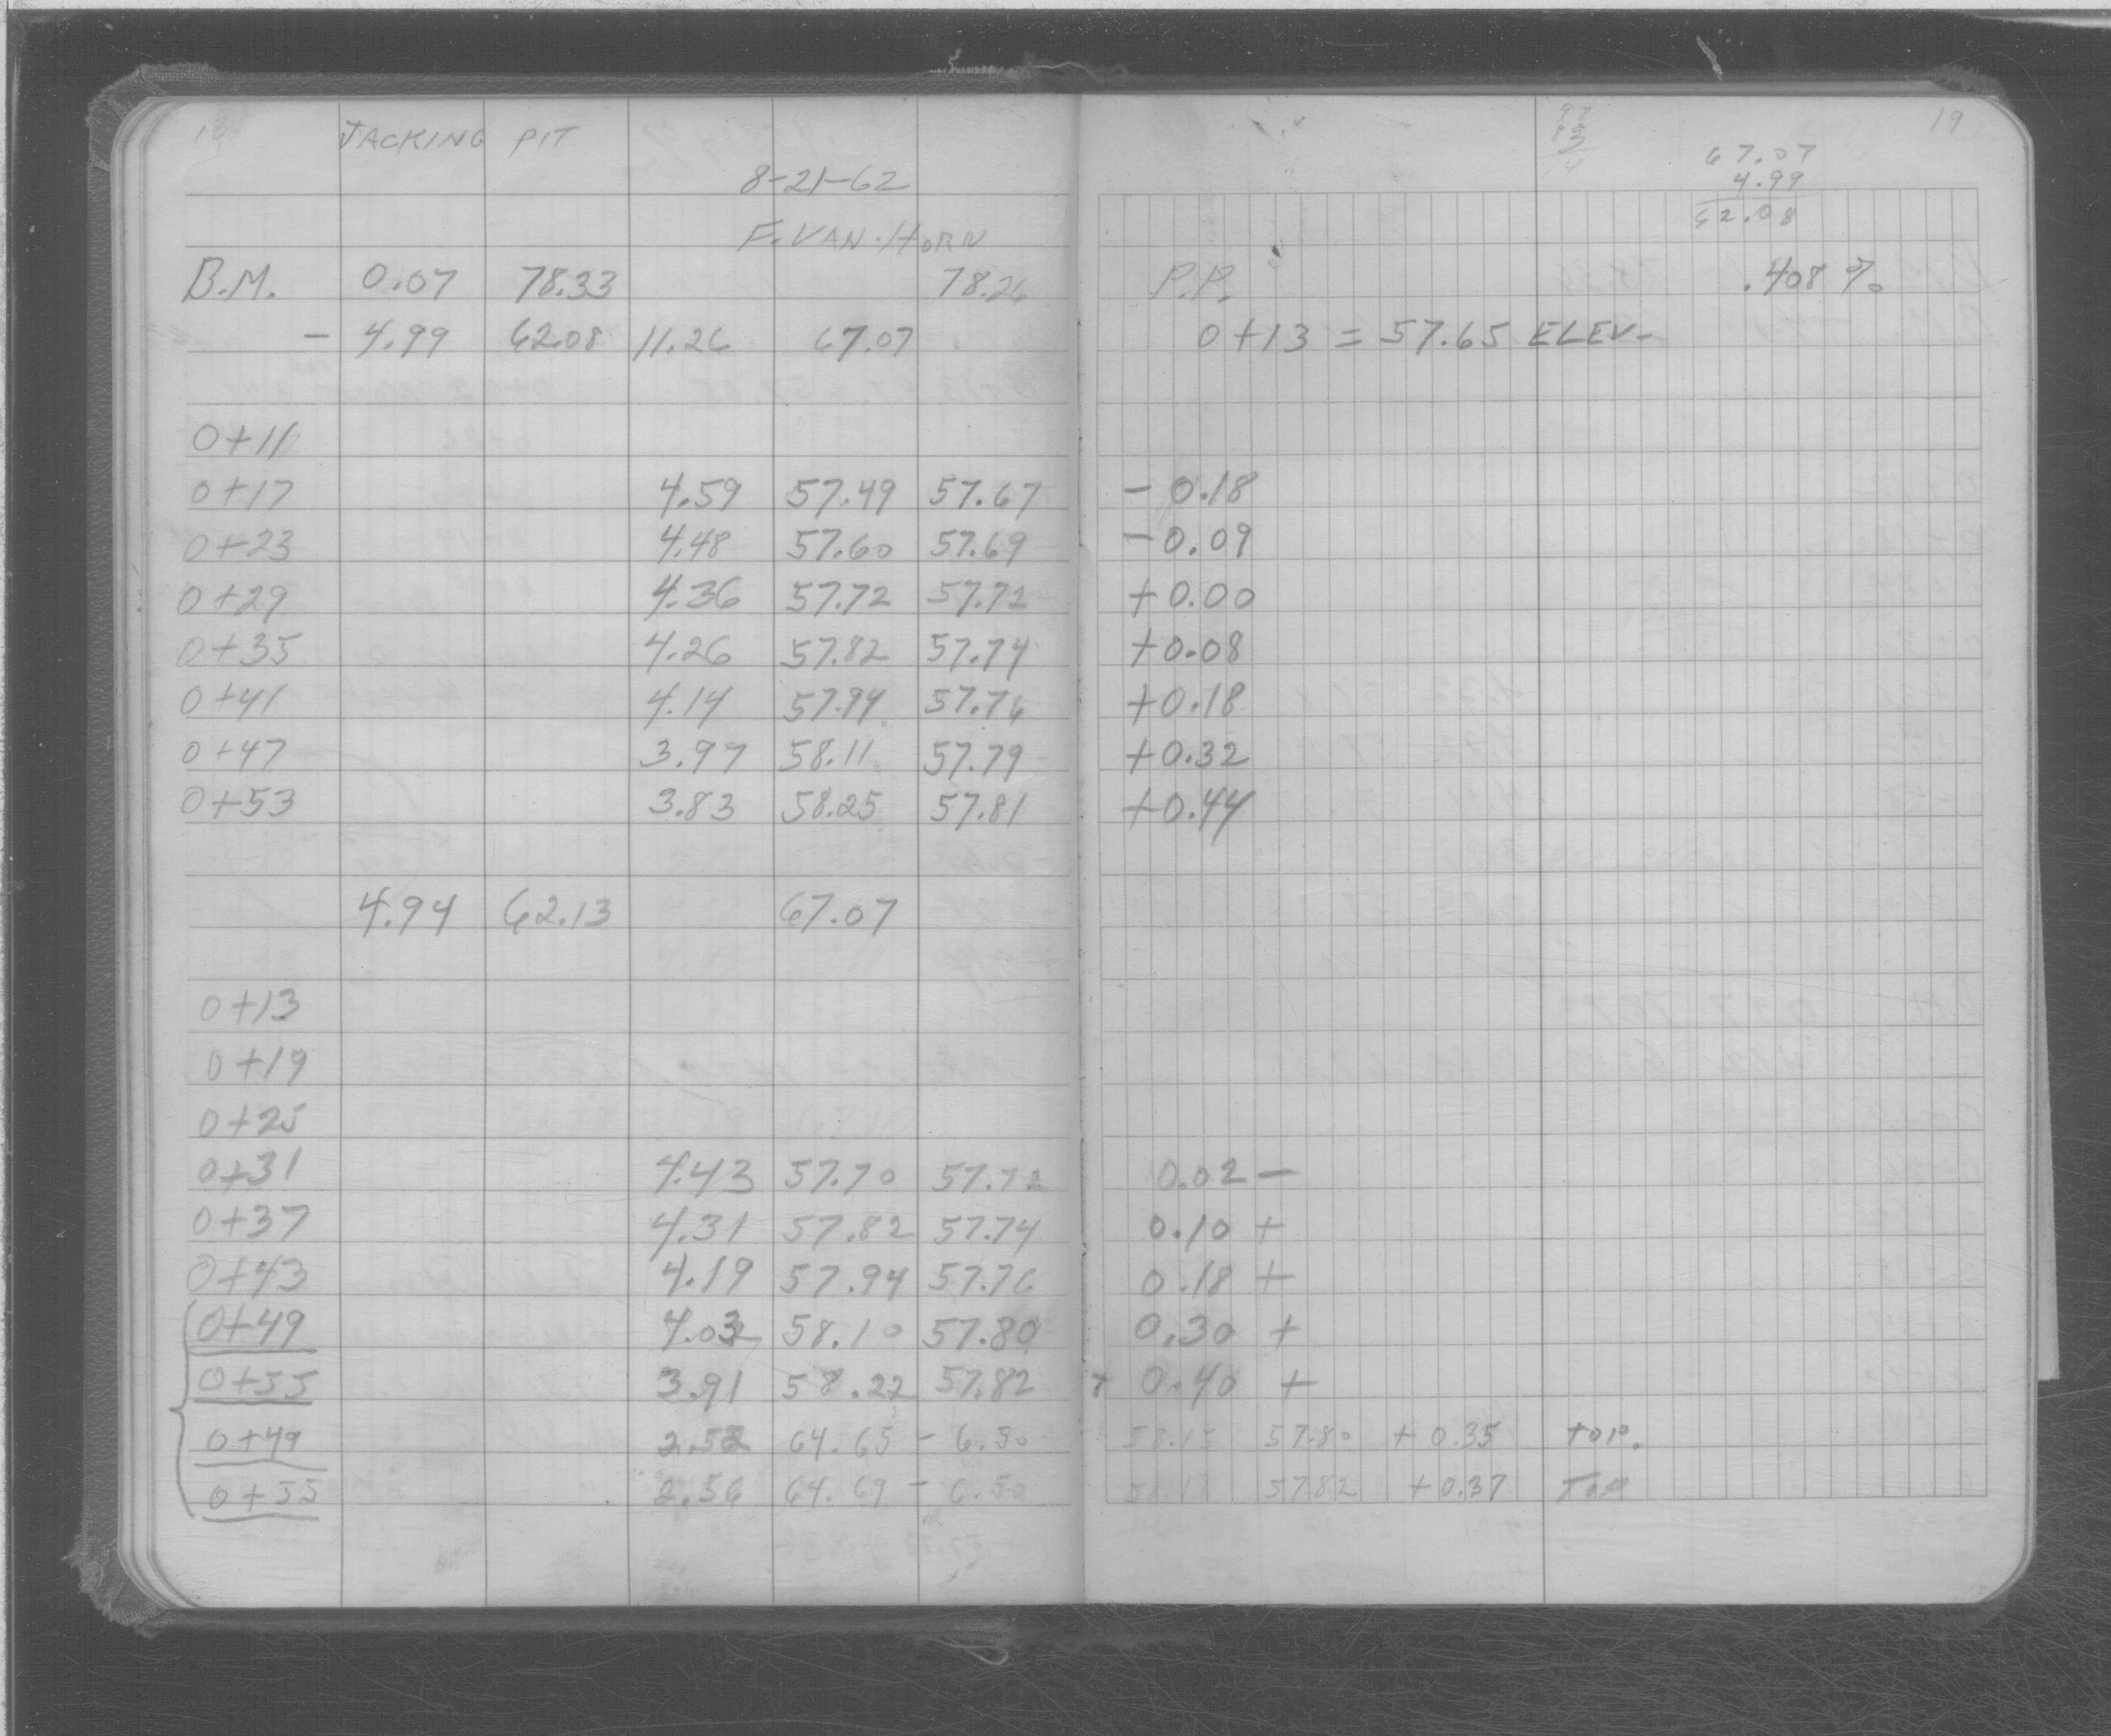 JACKING PIT
8-21-62
F. VAN HORN
B.M. 0.07 78.33 78.26
- 4.99 62.08 11.26 67.07
0+11
0+17 4.59 57.49 57.67
0+23 4.48 57.60 57.69
0+29 4.36 57.72 57.72
0+35 4.26 57.82 57.74
0+41 4.14 57.94 57.76
0+47 3.97 58.11 57.79
0+53 3.83 58.25 57.81
4.94 62.13 67.07
0+13
0+19
0+25
0+31 4.43 57.70 57.72
0+37 4.31 57.82 57.74
0+43 4.19 57.94 57.76
0+49 4.03 58.10 57.80
0+55 3.91 58.22 57.82
0+49 2.52 64.65 - 6.50
0+55 2.56 64.69 - 6.50
19
67.07
4.99
62.08
P.P. .408 %
0+13 = 57.65 ELEV-
- 0.18
- 0.09
+ 0.00
+ 0.08
+ 0.18
+ 0.32
+ 0.44
0.02 -
0.10 +
0.18 +
0.30 +
0.40 +
58.15 57.80 + 0.35 TOP.
58.19 57.82 + 0.37 TOP